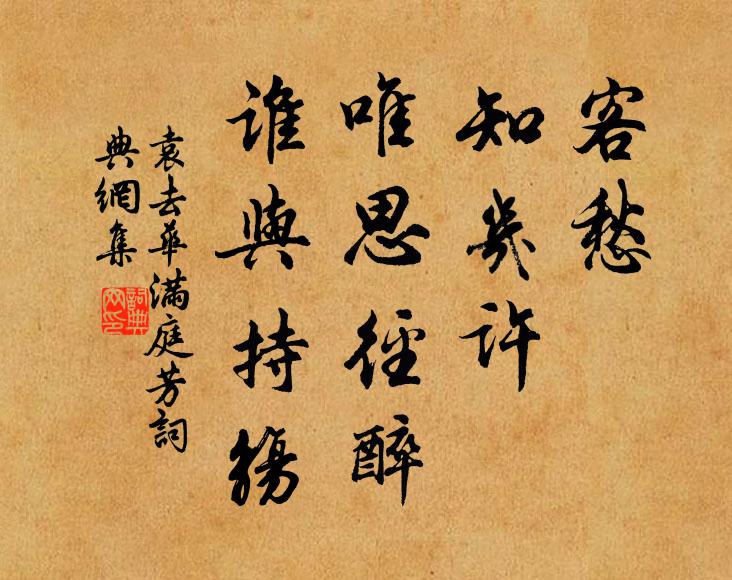 客愁
知幾許
唯思徑醉
誰與持觴
袁去華滿庭芳詞
典網集
詞典網印